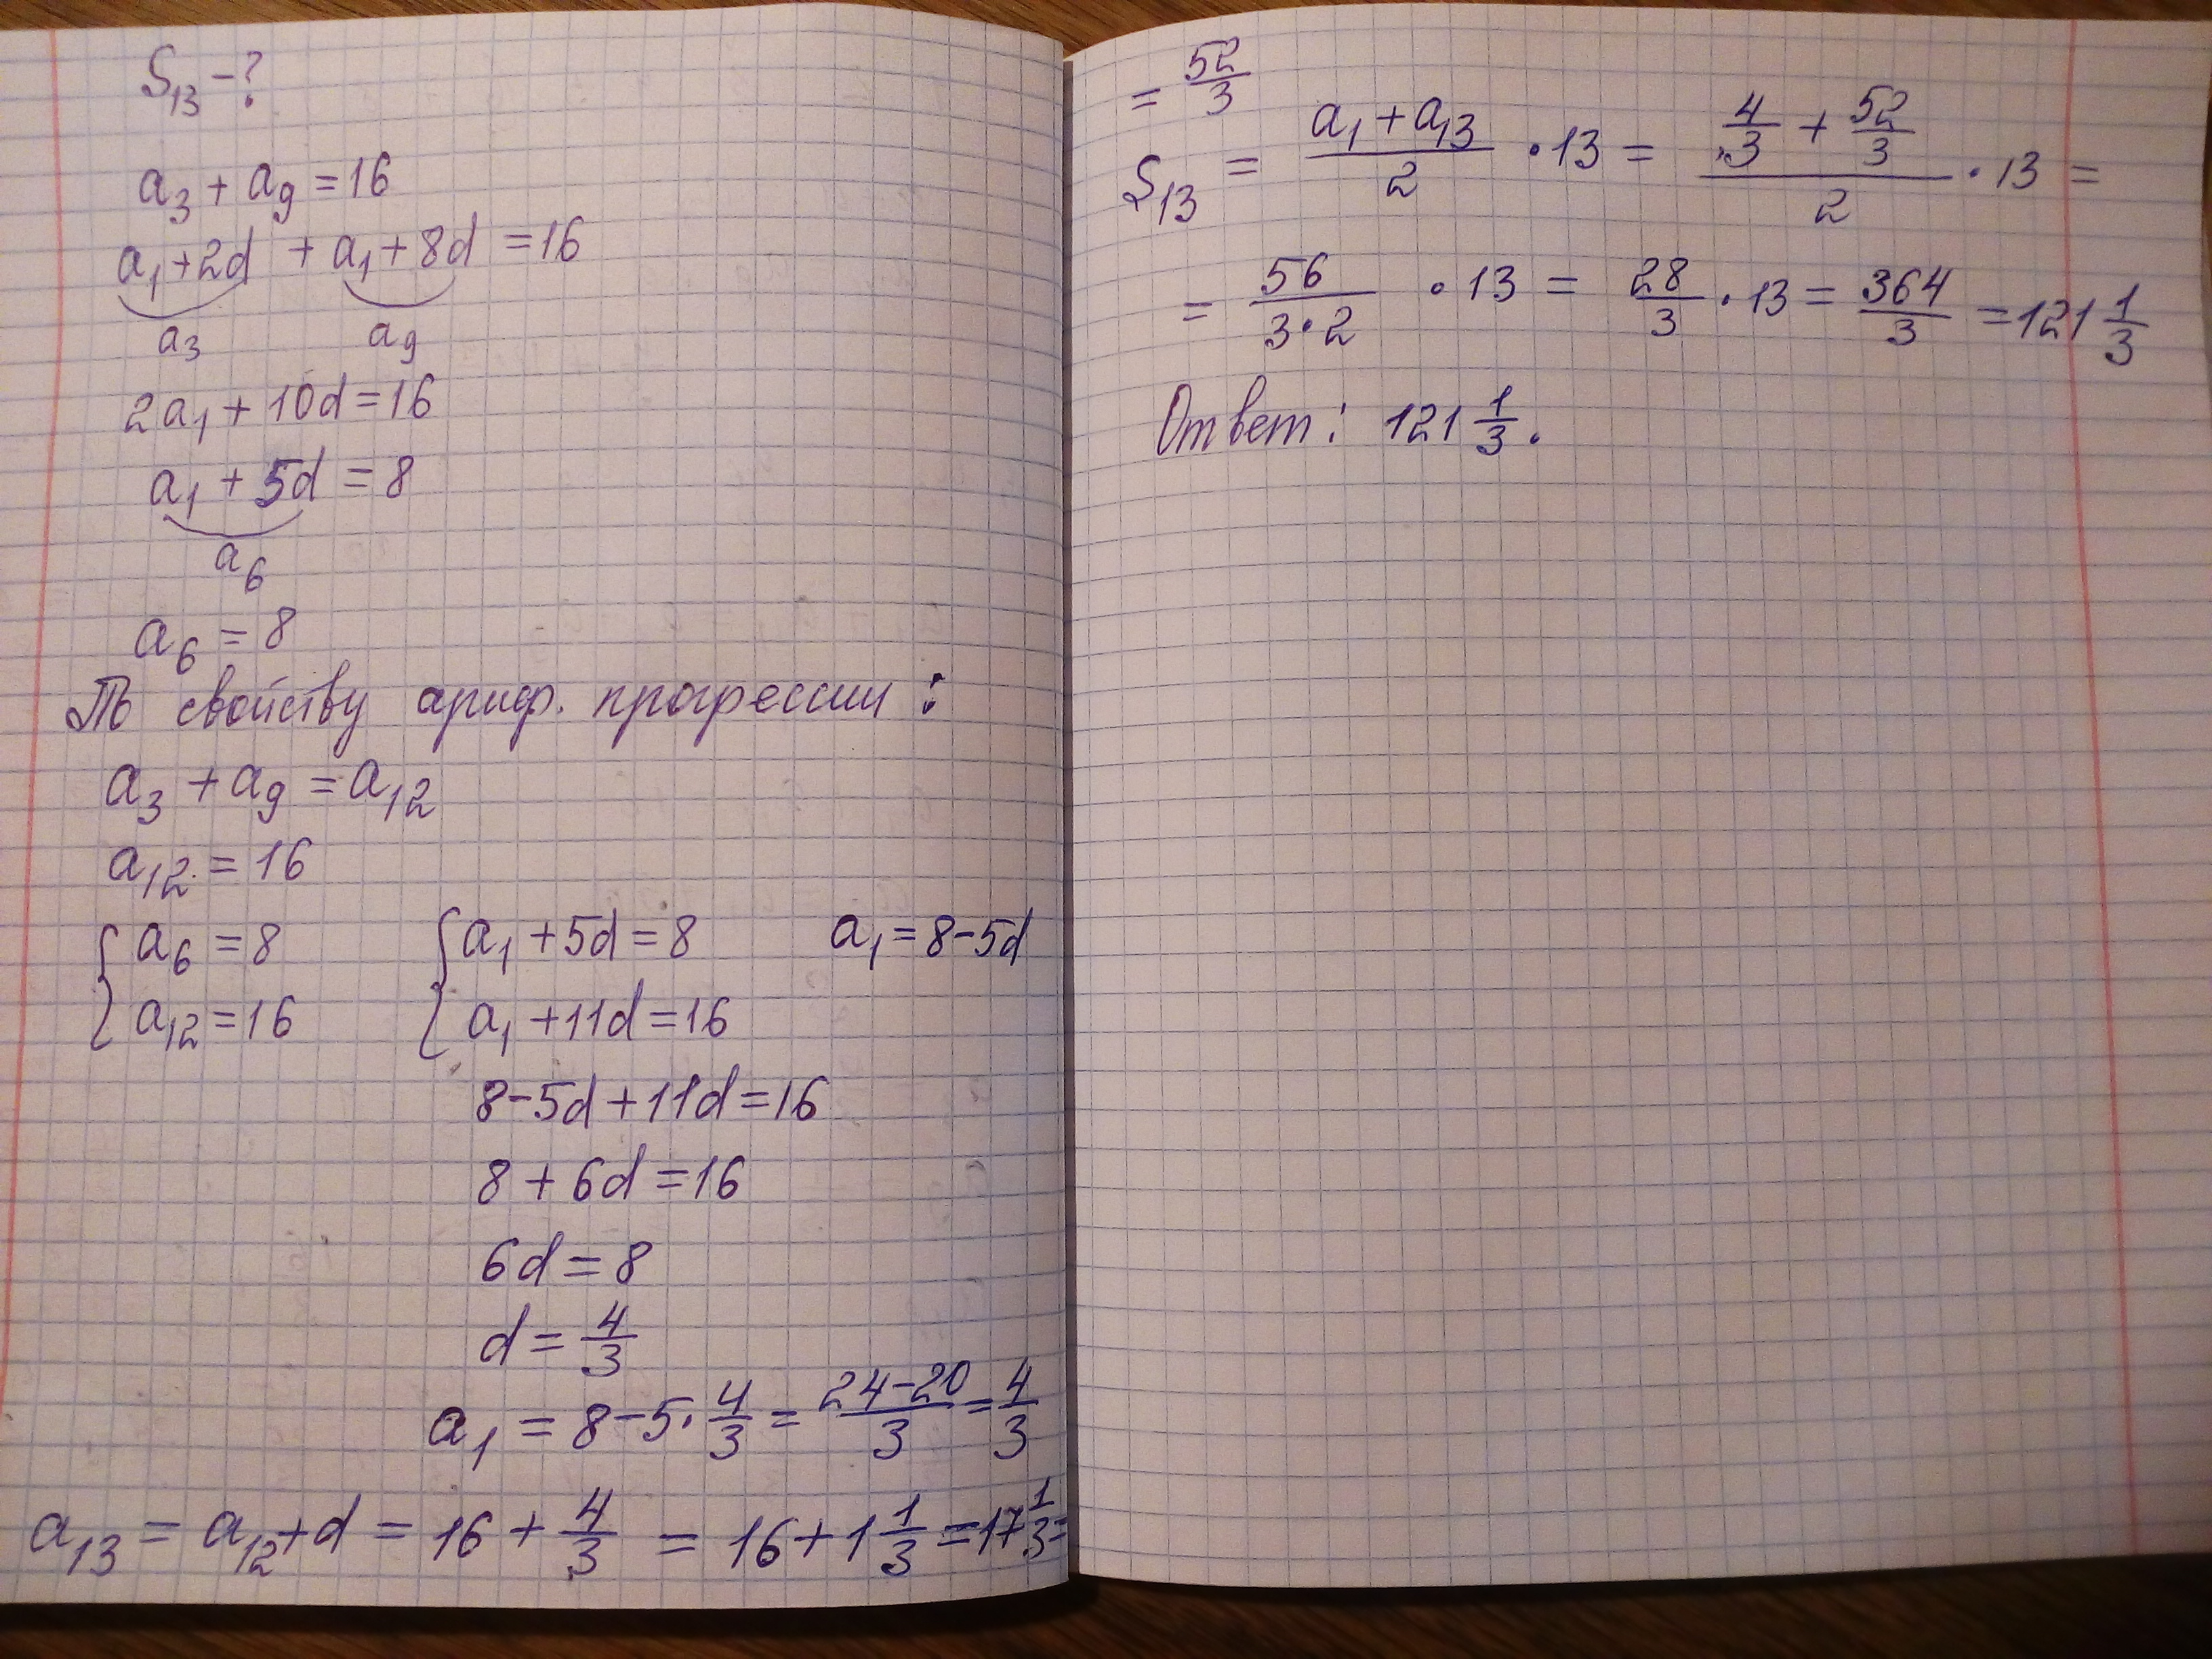 S₁₃ – ?
a₃ + a₉ = 16
a₁ + 2d + a₁ + 8d = 16
a₃ a₉
2a₁ + 10d = 16
a₁ + 5d = 8
a₆
a₆ = 8
По свойству ариф. прогрессии:
a₃ + a₉ = a₁₂
a₁₂ = 16
{ a₆ = 8 { a₁ + 5d = 8 a₁ = 8 – 5d
a₁₂ = 16 a₁ + 11d = 16
8 – 5d + 11d = 16
8 + 6d = 16
6d = 8
d = 4/3
a₁ = 8 – 5 · 4/3 = (24 – 20)/3 = 4/3
a₁₃ = a₁₂ + d = 16 + 4/3 = 16 + 1 1/3 = 17 1/3 =
= 52/3
S₁₃ = (a₁ + a₁₃)/2 · 13 = (4/3 + 52/3)/2 · 13 =
= 56/(3 · 2) · 13 = 28/3 · 13 = 364/3 = 121 1/3
Ответ: 121 1/3.